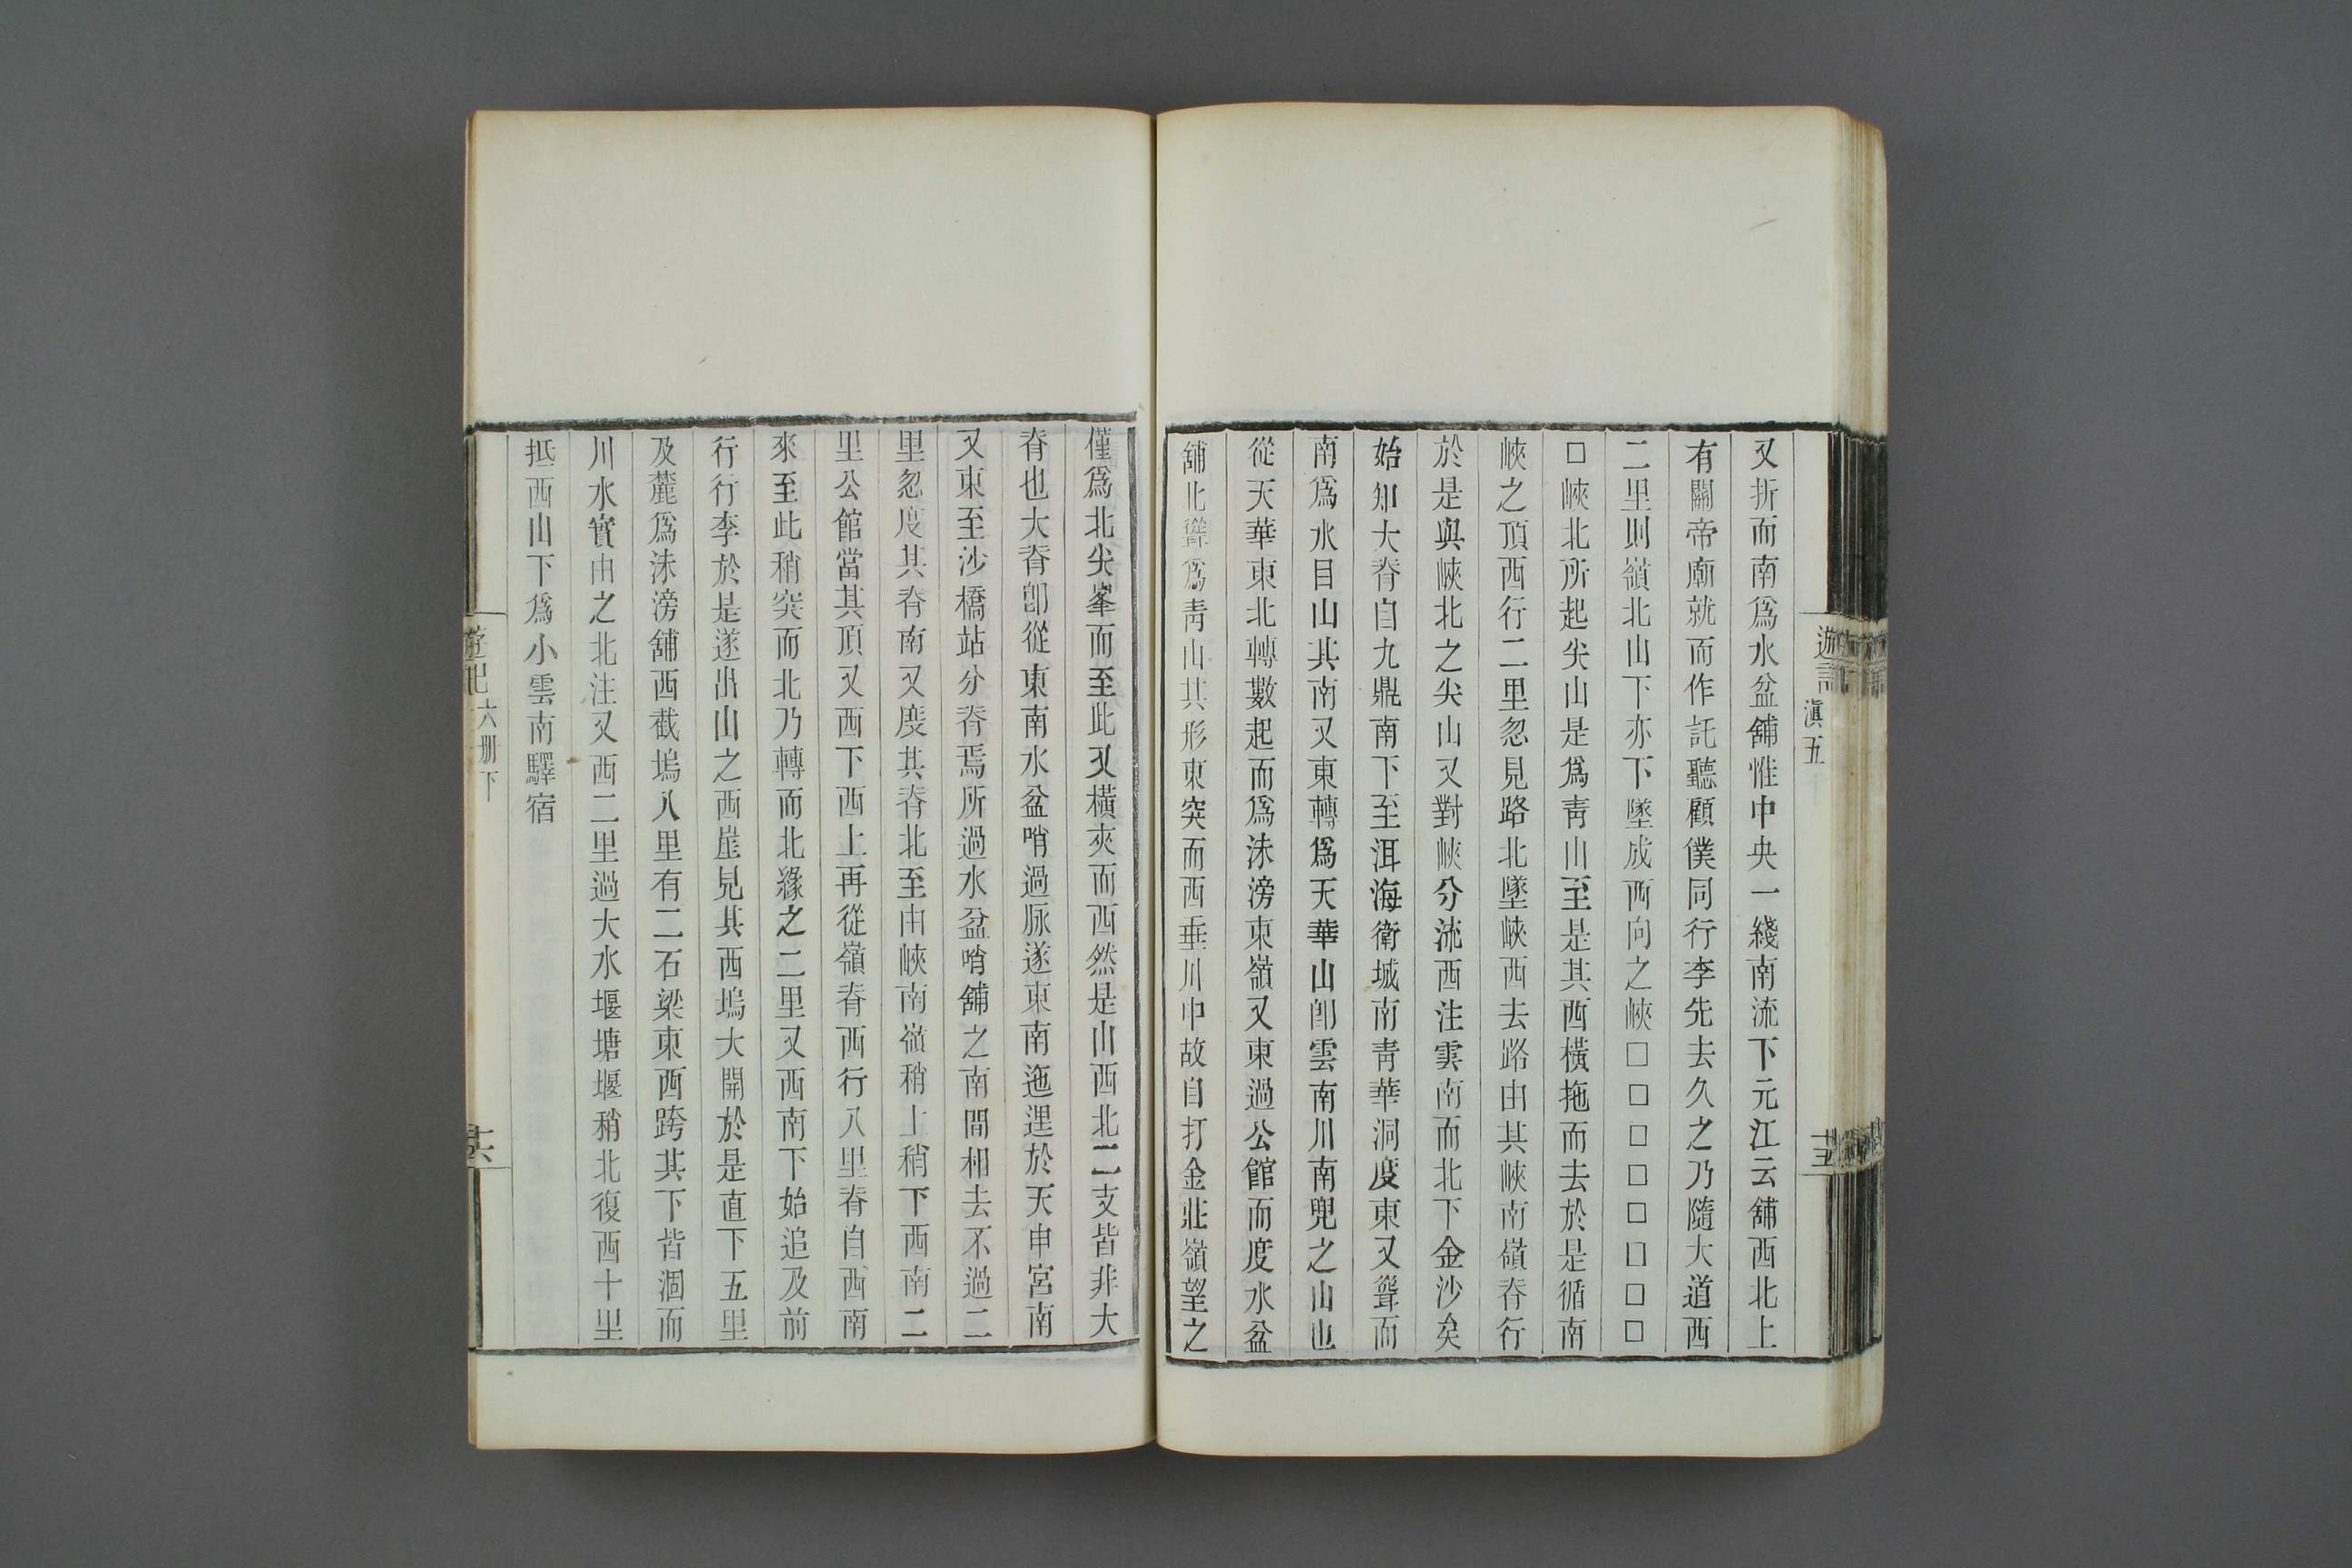 遊記
滇五
十五
又折而南爲水盆舖惟中央一綫南流下元江云舖西北上
有關帝廟就而作託聽顧僕同行李先去久之乃隨大道西
二里則嶺北山下亦下墜成西向之峽□□□□□□□□
□峽北所起尖山是爲靑山至是其西橫拖而去於是循南
峽之頂西行二里忽見路北墜峽西去路由其峽南嶺脊行
於是與峽北之尖山又對峽分流西注雲南而北下金沙矣
始知大脊自九鼎南下至洱海衛城南靑華洞度東又聳而
南爲水目山其南又東轉爲天華山卽雲南川南兜之山也
從天華東北轉數起而爲沬滂東嶺又東過公館而度水盆
舖北聳爲靑山其形東突而西垂川中故自打金莊嶺望之
僅爲北尖峯而至此又橫夾而西然是山西北二支皆非大
脊也大脊卽從東南水盆哨過脉遂東南迤邐於天申宮南
又東至沙橋站分脊焉所過水盆哨舖之南間相去不過二
里忽度其脊南又度其脊北至由峽南嶺稍上稍下西南二
里公館當其頂又西下西上再從嶺脊西行八里脊自西南
來至此稍突而北乃轉而北緣之二里又西南下始追及前
行行李於是遂出山之西崖見其西塢大開於是直下五里
及麓爲沬滂舖西截塢八里有二石梁東西跨其下皆涸而
川水實由之北注又西二里過大水堰塘堰稍北復西十里
抵西山下爲小雲南驛宿
遊記
六册下
十六